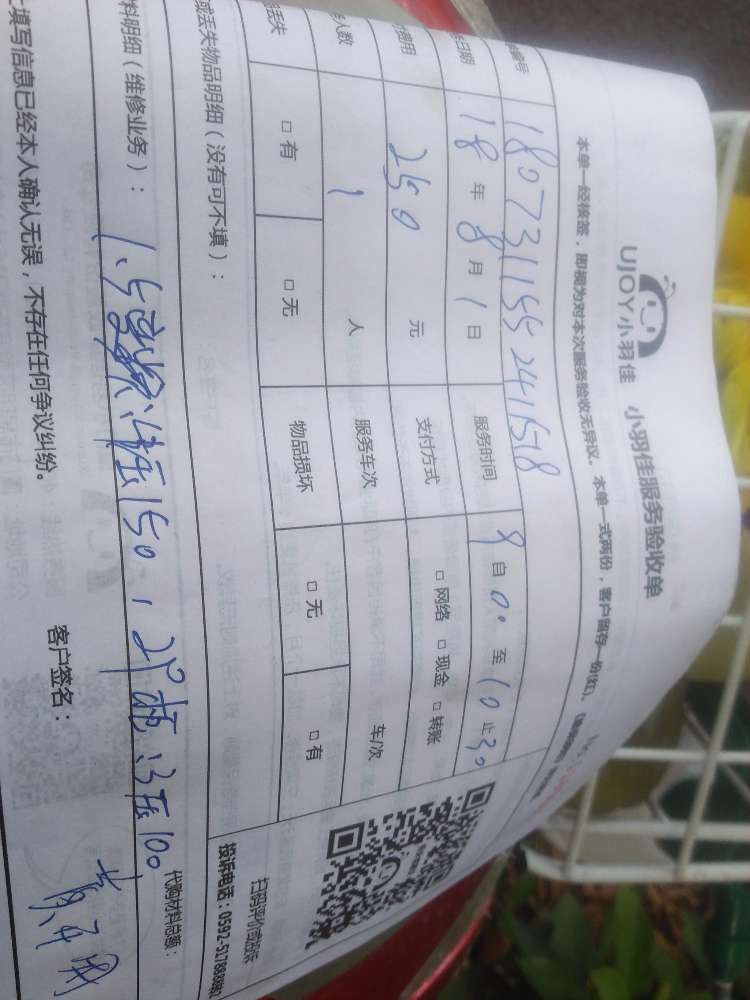 UJOY小羽佳 小羽佳服务验收单
本单一经核签，即视为对本次服务验收无异议。本单一式两份，客户留存一份(红)。
编号 1807311552411518
日期 18年8月1日 服务时间 自9:00至10:30止
费用 250元 支付方式 □网络 □现金 □转账
人数 1人 服务车次 车/次
丢失 □有 □无 物品损坏 □无 □有
扫码评价或投诉
投诉电话：0592-5178888
或丢失物品明细（没有可不填）：
料明细（维修业务）： 150, 100
代购材料总额：
填写信息已经本人确认无误，不存在任何争议纠纷。
客户签名：